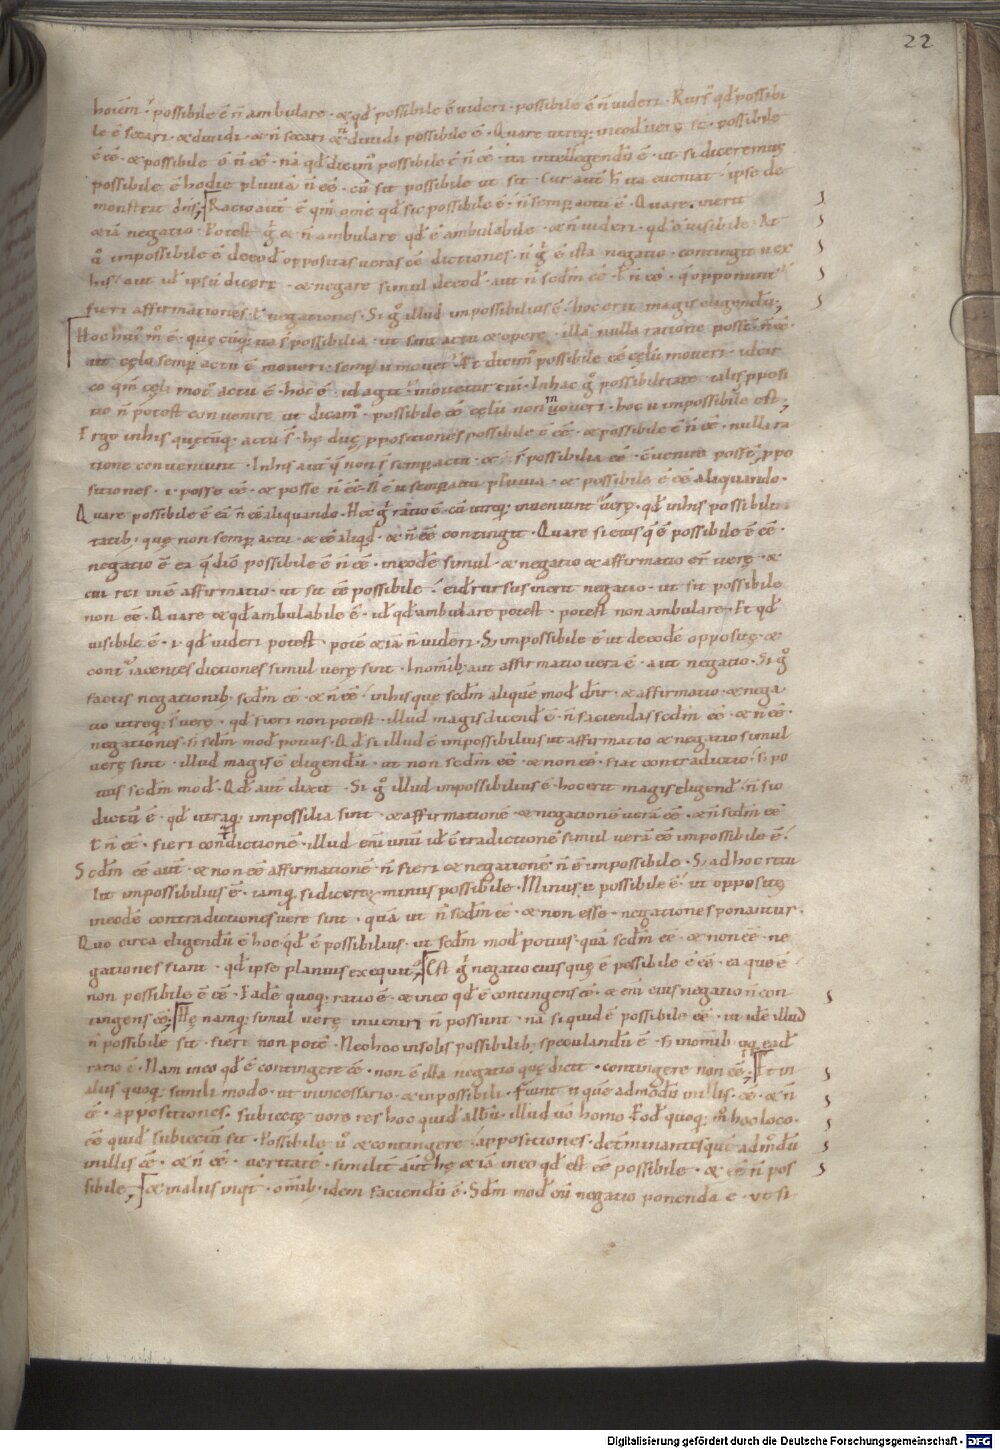 22
hoiem · possibile ē n̄ ambulare · & qđ possibile ē uideri · possibile ē n̄ uideri · Rurs' qđ possibi
le ē secari · & diuidi · & n̄ secari & n̄ diuidi possibile ē · Quare utreq; in eod uerę st · possibile
ē ēē · & possibile ē n̄ ēē · nā qđ dicim' possibile ē n̄ ēē · ita intellegendū ē · ut si diceremus
possibile ē hodie pluuiā n̄ ēē · cū sit possibile ut sit · Cur aut h̄ ita eueniat · ipse de
monstrat dn̄s; Ratio aut ē qm̄ om̄e qđ sic possibile ē · n̄ semp actu ē · Quare inerit
& iā negatio · Potest g & n̄ ambulare qđ ē ambulabile · & n̄ uideri · qđ ē uisibile · At
u impossibile ē de eod oppositas ueras ēē dictiones · n̄ g ē ista negatio · contingit u ex
his / aut ul ipsū dicere · & negare simul de eod · aut n̄ scdm ēē · t n̄ ēē · q opponunt
fieri affirmationes t negationes · Si g illud impossibilius ē · hoc erit magis eligendū;
Hoc hui' m̄ ē · quę cūq; ita s possibilia · ut sint actu & opere · illa nulla ratione poss̄t n̄ ēē ·
ut cęlo semp actu ē moueri · semp u mouet' · At dicim' possibile ēē cęlū moueri · idcir
co qm̄ cęli mot' actu ē · hoc ē · id agit' · mouetur eni · In hac g possibilitate · talis pposi
tio n̄ potest conuenire ut dicam' · possibile ēē cęlū non moueri · hoc u impossibile est;
Ergo in his quęcūq; actu s · hę duę ppositiones possibile ē ēē · & possibile ē n̄ ēē · nulla ra
tione conueniunt · In his aut q non s semp actu · & s possibilia ēē · cuenire poss̄t ppo
sitiones · i · posse ēē · & posse n̄ ēē · n̄ ē u semp actu pluuia · & possibile ē ēē aliquando ·
Quare possibile ē eā n̄ ēē aliquando · Hec g ratio ē · cū utreq; inueniunt' uerę · qđ in his possibili
tatib; quę non semp actu · & ēē aliqd · & n̄ ēē contingit · Quare si eius q ē possibile ē ēē ·
negatio ē ea q dic' possibile ē n̄ ēē · in eodē simul · & negatio & affirmatio er' uerę · &
cui rei inē affirmatio · ut sit ēē possibile · eid rursus inerit negatio · ut sit possibile
non ēē · Quare & qđ ambulabile ē · id qđ ambulare potest · potest non ambulare · Et qđ
uisibile ē · i · qđ uideri potest · potē & iā n̄ uideri · S; impossibile ē ut de eodē oppositę · &
cont' iacentes dictiones simul uerę sint · In omib; aut affirmatio uera ē · aut negatio · Si g
factis negationib; scdm ēē · & n̄ ēē · in his quę scdm aliquē mod dnr̄ · & affirmatio · & nega
tio utreq; s uerę · qđ fieri non potest · illud magis dicend ē · n̄ faciendas scdm ēē · & n̄ ēē ·
negationes · si scdm mod potius · Qđ si illud ē impossibilius ut affirmatio & negatio simul
uerę sint · illud magis ē eligendū · ut non scdm ēē · & non ēē · fiat contradictio · si po
tius scdm mod · Qđ aut dixit · Si g illud impossibilius ē · hoc erit magis eligend · n̄ sic
dictū ē · qđ utraq; impossilia sint · & affirmationē & negationē uerā ēē · & n̄ scdm ēē
t n̄ ēē · fieri condictionē · illud eni unū id ē ctradictionē simul uerā ēē impossibile ē ·
Scdm ēē aut · & non ēē affirmationē · n̄ fieri & negationē n̄ ē impossibile · S; ad hoc rtu
lit impossibilius ē · tamq si diceret · minus possibile · Minus u possibile ē · ut oppositę
in eodē contradictiones uere sint · quā ut n̄ scdm ēē · & non esse · negationes ponantur ·
Quo circa eligendū ē hoc qđ ē possibilius · ut scdm mod potius · quā scdm ēē · & non ēē · ne
gationes fiant · qđ ipse planius exequit'; Est g negatio eius quę ē possibile ē ēē · ea que ē
non possibile ē ēē · Eadē quoq; ratio ē · & in eo qđ ē contingens ēē · & eni eius negatio n̄ con
tingens ēē; Hę namq; simul uerę inueniri n̄ possunt · nā si quid ē possibile ēē · ut idē illud
n̄ possibile sit · fieri non potē · Nec hoc in solis possibilib; speculandū ē · s; in omib; qq eadē
ratio ē · Nam in eo qđ ē contingere ēē · non ē illa negatio quę dicit · contingere non ēē; Et in
aliis quoq; simili modo · ut in necessario · & inpossibili · Fiunt n quē admodū in illis · ēē · & n̄
ēē · appositiones · subiectę uero res hoc quid albū · illud uo homo · Eod quoq; m̄ hoc loco ·
ēē quid subiectū sit · Possibile u & contingere · appositiones · determinantes que admodū
in illis ēē · & n̄ ēē · ueritatē · similit' aut hę & iā in eo qđ est ēē possibile · & ēē n̄ pos
sibile; & in aliis inqt · omib; idem faciendū ē · Scdm mod eni negatio ponenda ē · ut si
Digitalisierung gefördert durch die Deutsche Forschungsgemeinschaft - DFG